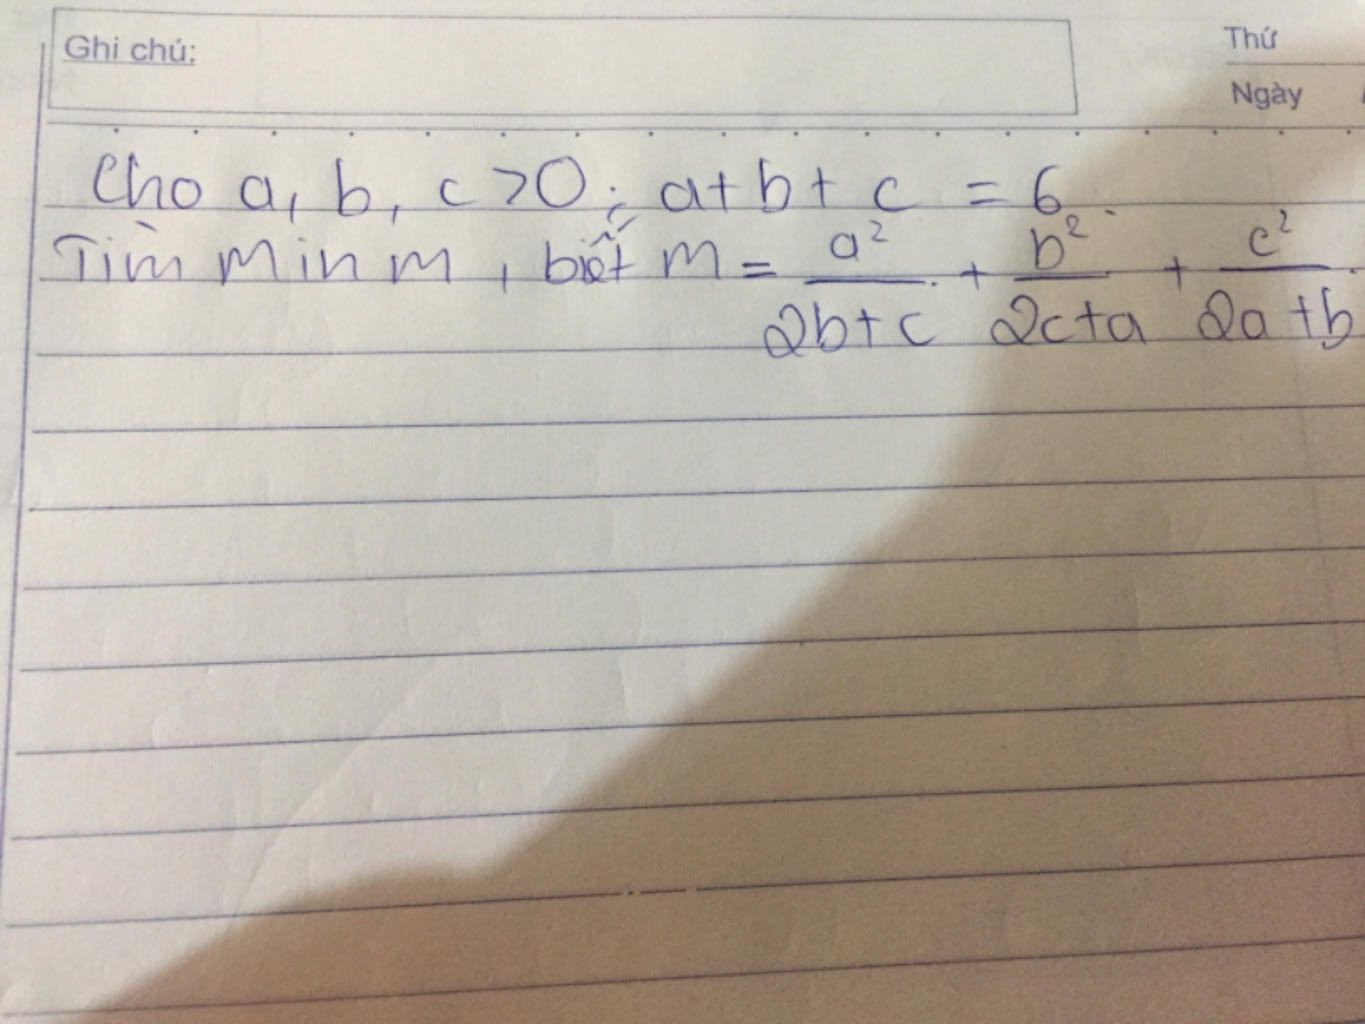 Ghi chú:
Thứ
Ngày
Cho a, b, c > 0 ; a + b + c = 6.
Tìm min m, biết m = a²/(2b+c) + b²/(2c+a) + c²/(2a+b)